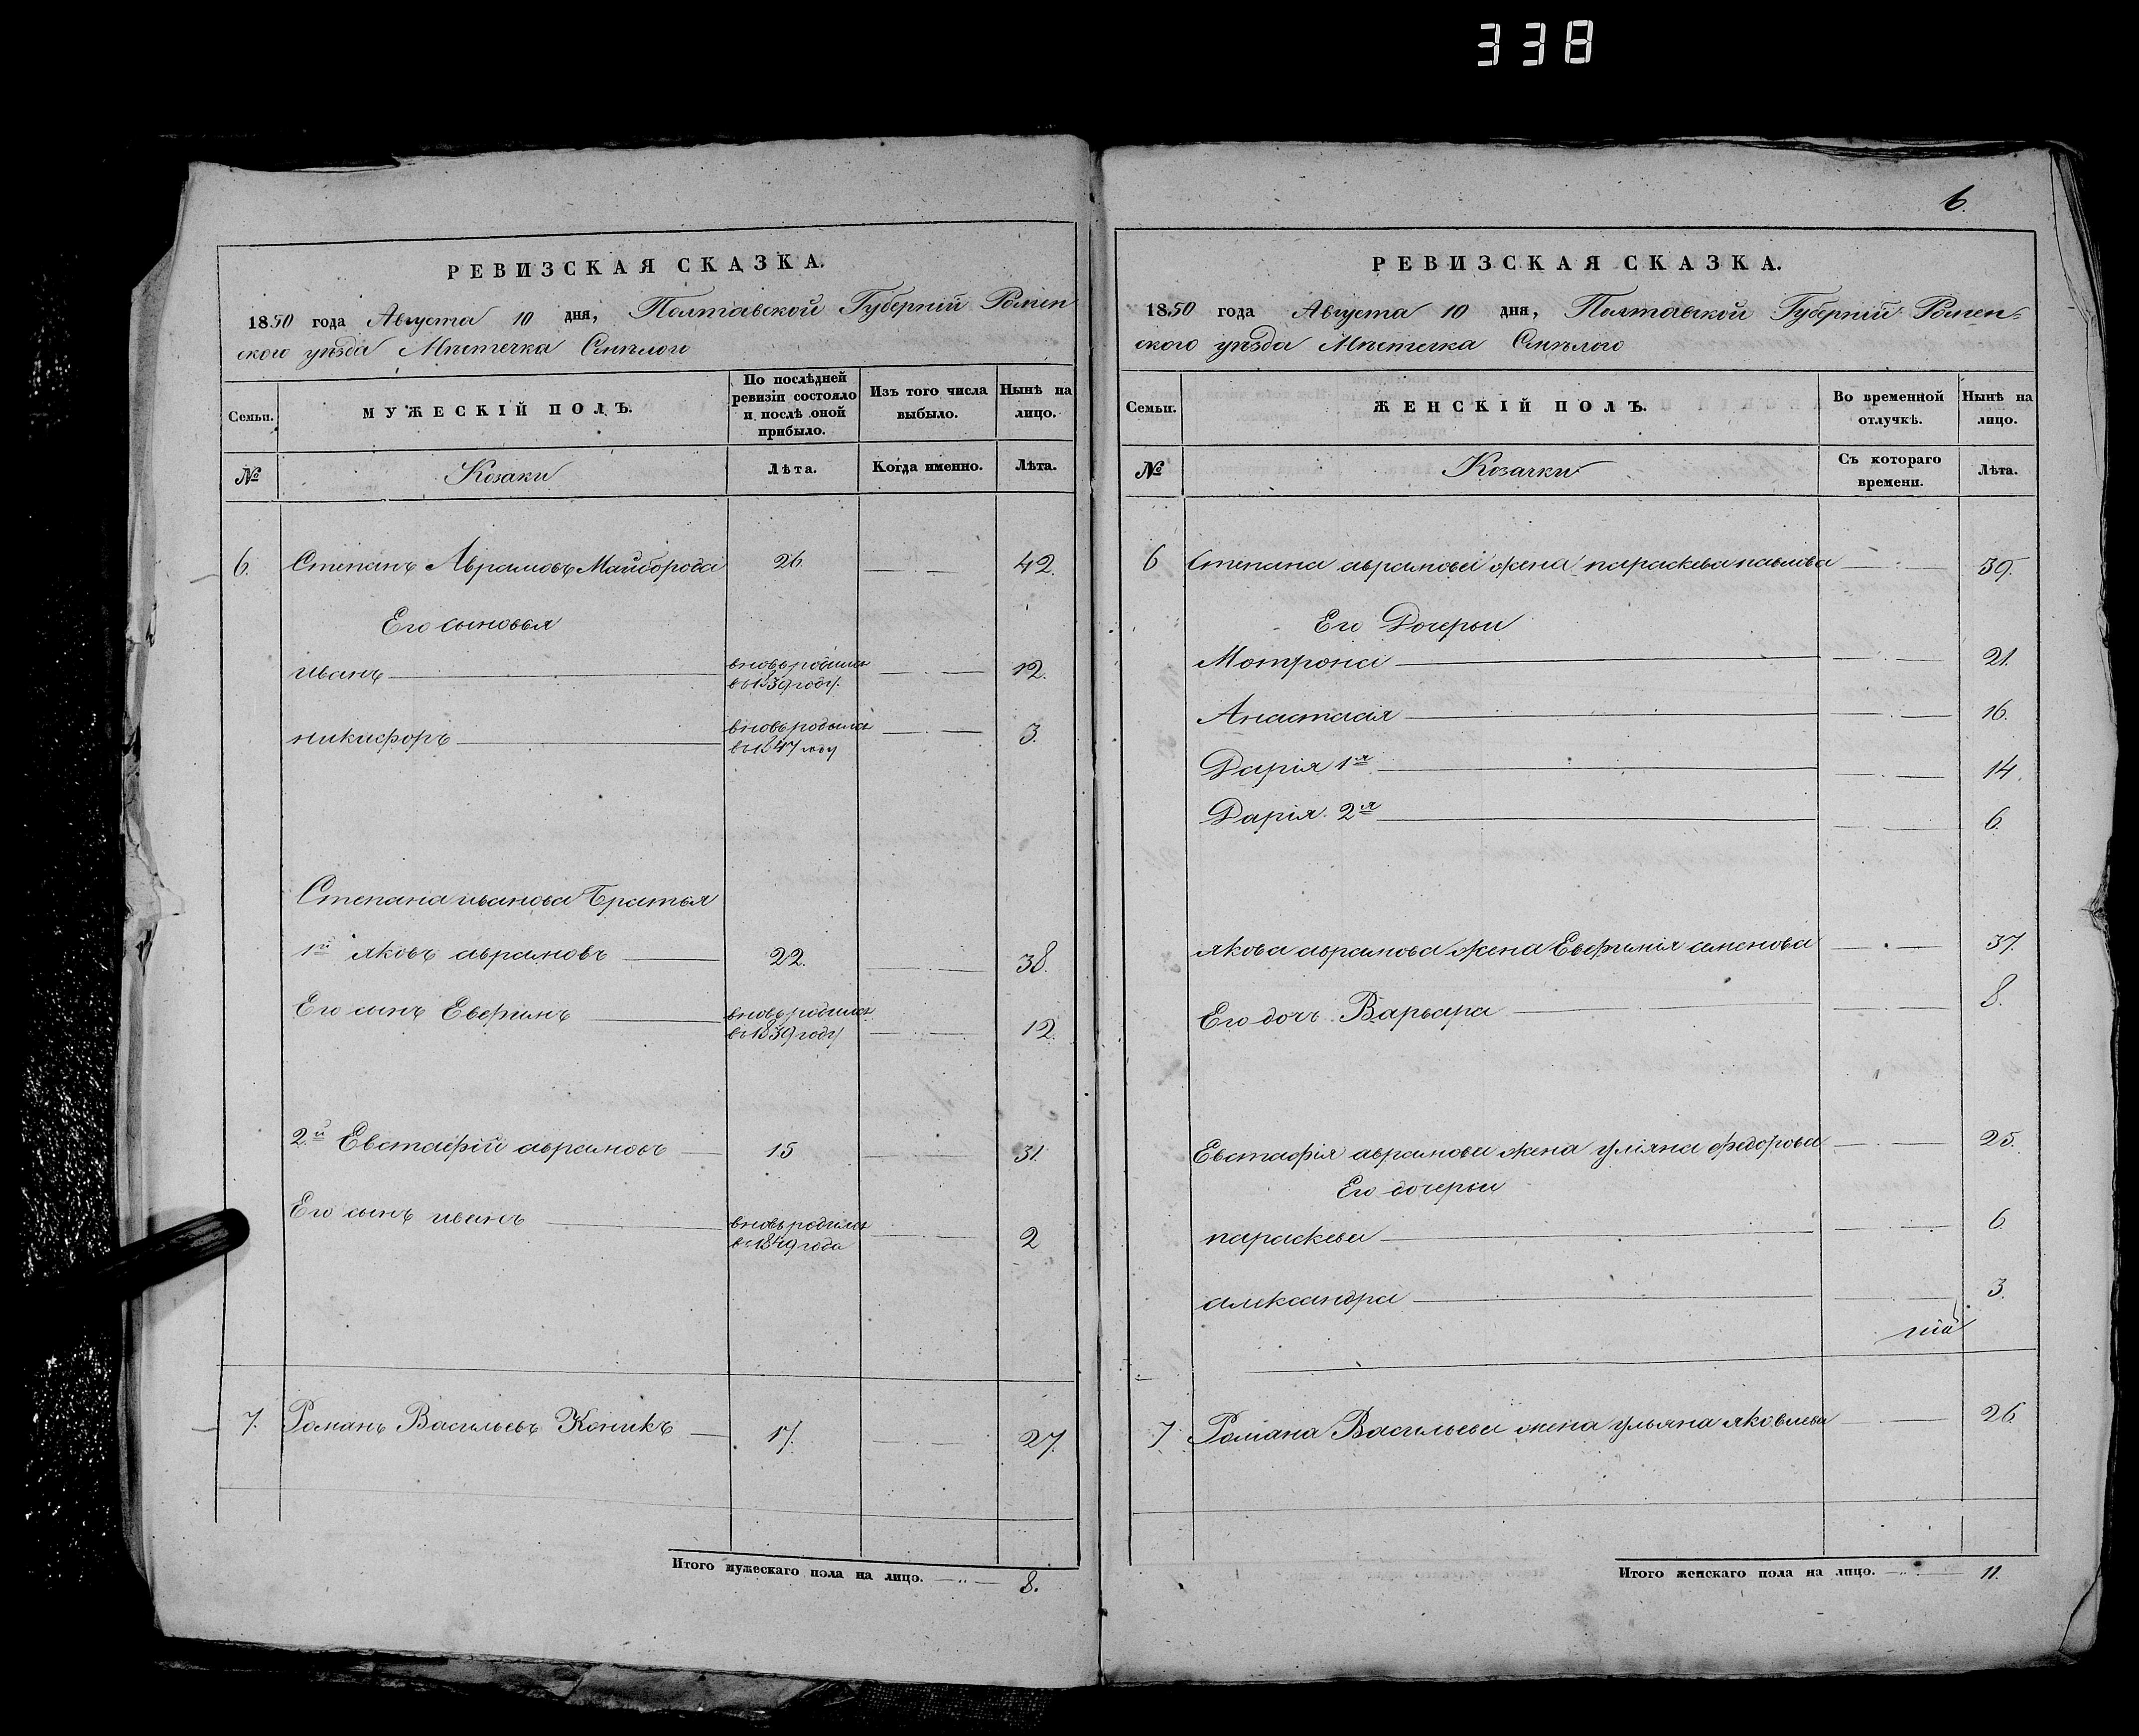 338
РЕВИЗСКАЯ СКАЗКА.
1850 года Августа 10 дня, Полтавской Губерніи Ромен
ского уѣзда Мѣстечка Смѣлого
Семьи.
МУЖЕСКІЙ ПОЛЪ.
По послѣдней ревизіи состояло и послѣ оной прибыло.
Изъ того числа выбыло.
Нынѣ на лицо.
№
Козаки
Лѣта.
Когда именно.
Лѣта.
6. Степанъ Аврамовъ Майборода 26 42.
Его сыновья
иванъ вновь родился въ 1839 году. 12.
никифоръ вновь родился въ 1847 году 3.
Степана иванова Братья
1й яковъ аврамовъ 22. 38.
Его сынъ Евфимъ вновь родился въ 1839 году 12.
2й Евстафій аврамовъ 15 31.
Его сынъ иванъ вновь родился въ 1849 года 2
7. Романъ Васильевъ Коникъ 17. 27.
Итого мужескаго пола на лицо. 8.
6.
РЕВИЗСКАЯ СКАЗКА.
1850 года Августа 10 дня, Полтавской Губерніи Ромен-
ского уѣзда Мѣстечка Смѣлого
Семьи.
ЖЕНСКІЙ ПОЛЪ.
Во временной отлучкѣ.
Нынѣ на лицо.
№
Козачки
Съ котораго времени.
Лѣта.
6 Степана аврамова жена параскева павлова 39.
Его Дочерьи
Мотрона 21.
Анастасія 16.
Дарія 1я 14.
Дарія. 2я 6.
якова аврамова жена Евфимія семенова 37.
Его дочъ Варвара 8.
Евстафія аврамова жена уліяна федорова 25.
Его дочерьи
параскева 6
александра 3.
7 Романа Васильева жена ульяна яковлева 26
Итого женскаго пола на лицо. 11.